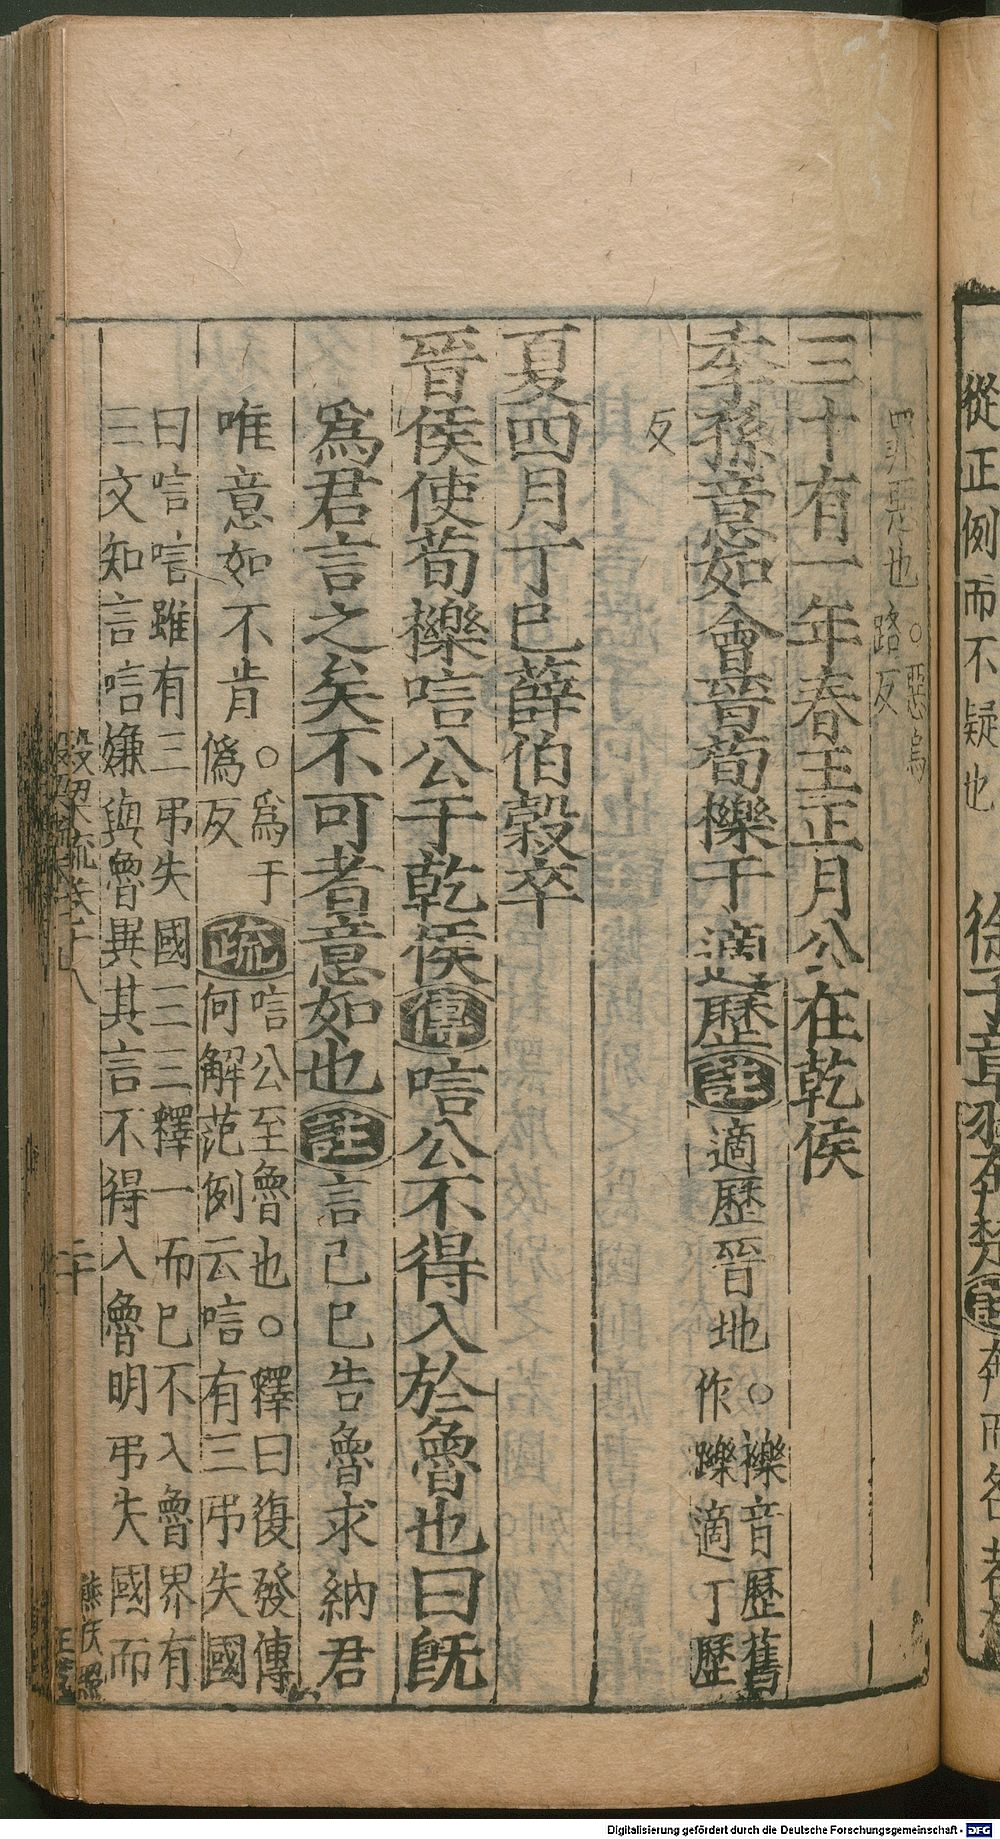 罪惡也
。惡烏
路反
三十有一年春王正月公在乾侯
季孫意如會晉荀櫟于適歷註適歷晉地
。櫟音歷舊
作躒適丁歷
反
夏四月丁巳薛伯穀卒
晉侯使荀櫟唁公于乾侯傳唁公不得入於魯也曰旣
爲君言之矣不可者意如也註言已巳告魯求納君
唯意如不肯
。爲于
僞反
疏
唁公至魯也。釋曰復發傳
何解范例云唁有三弔失國
曰唁唁雖有三弔失國三三釋一而巳不入魯界有
三文知言唁嫌與魯異其言不得入魯明弔失國而
二十
熊茂照
從正例而不疑也
徐子章羽奔楚註奔而名者
Digitalisierung gefördert durch die Deutsche Forschungsgemeinschaft - DFG